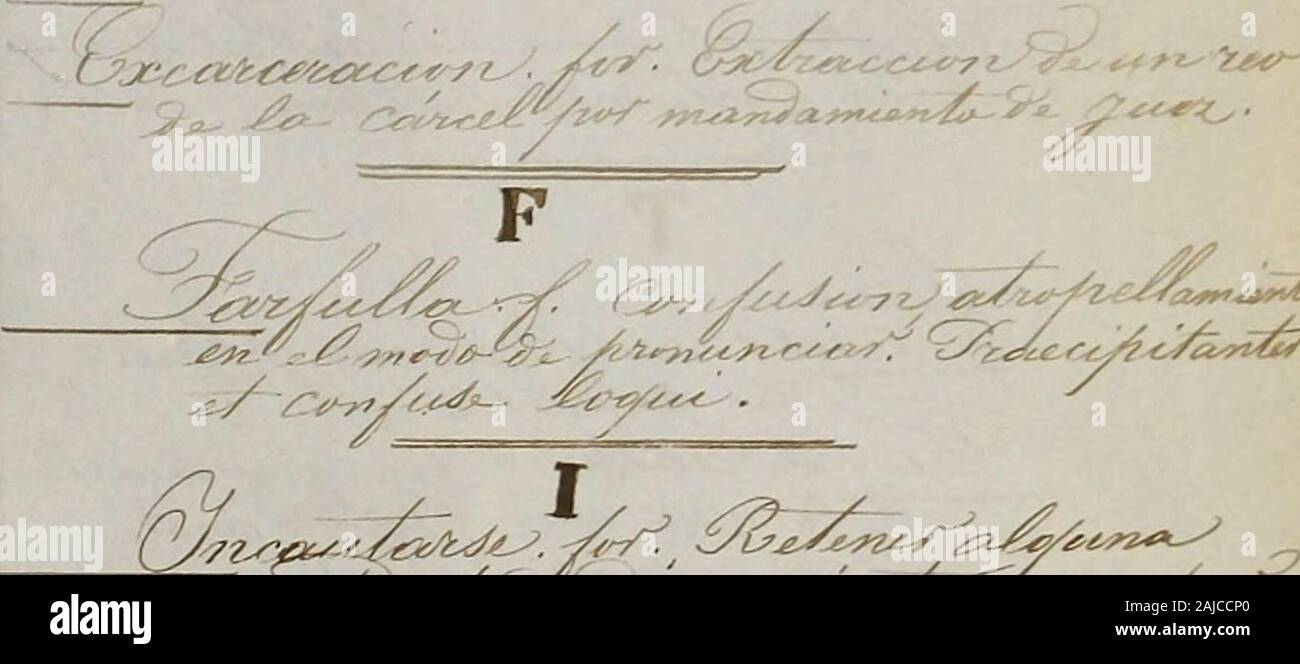 Excarceracion. for. Extraccion de un reo
de la cárcel por mandamiento de Juez.
F
Farfulla. f. Confusion, atropellamient
en el modo de pronunciar. Praecipitanter
et confuse loqui.
I
Incautarse. for. Retener alguna
alamy
Image ID: 2AJCCP0
www.alamy.com